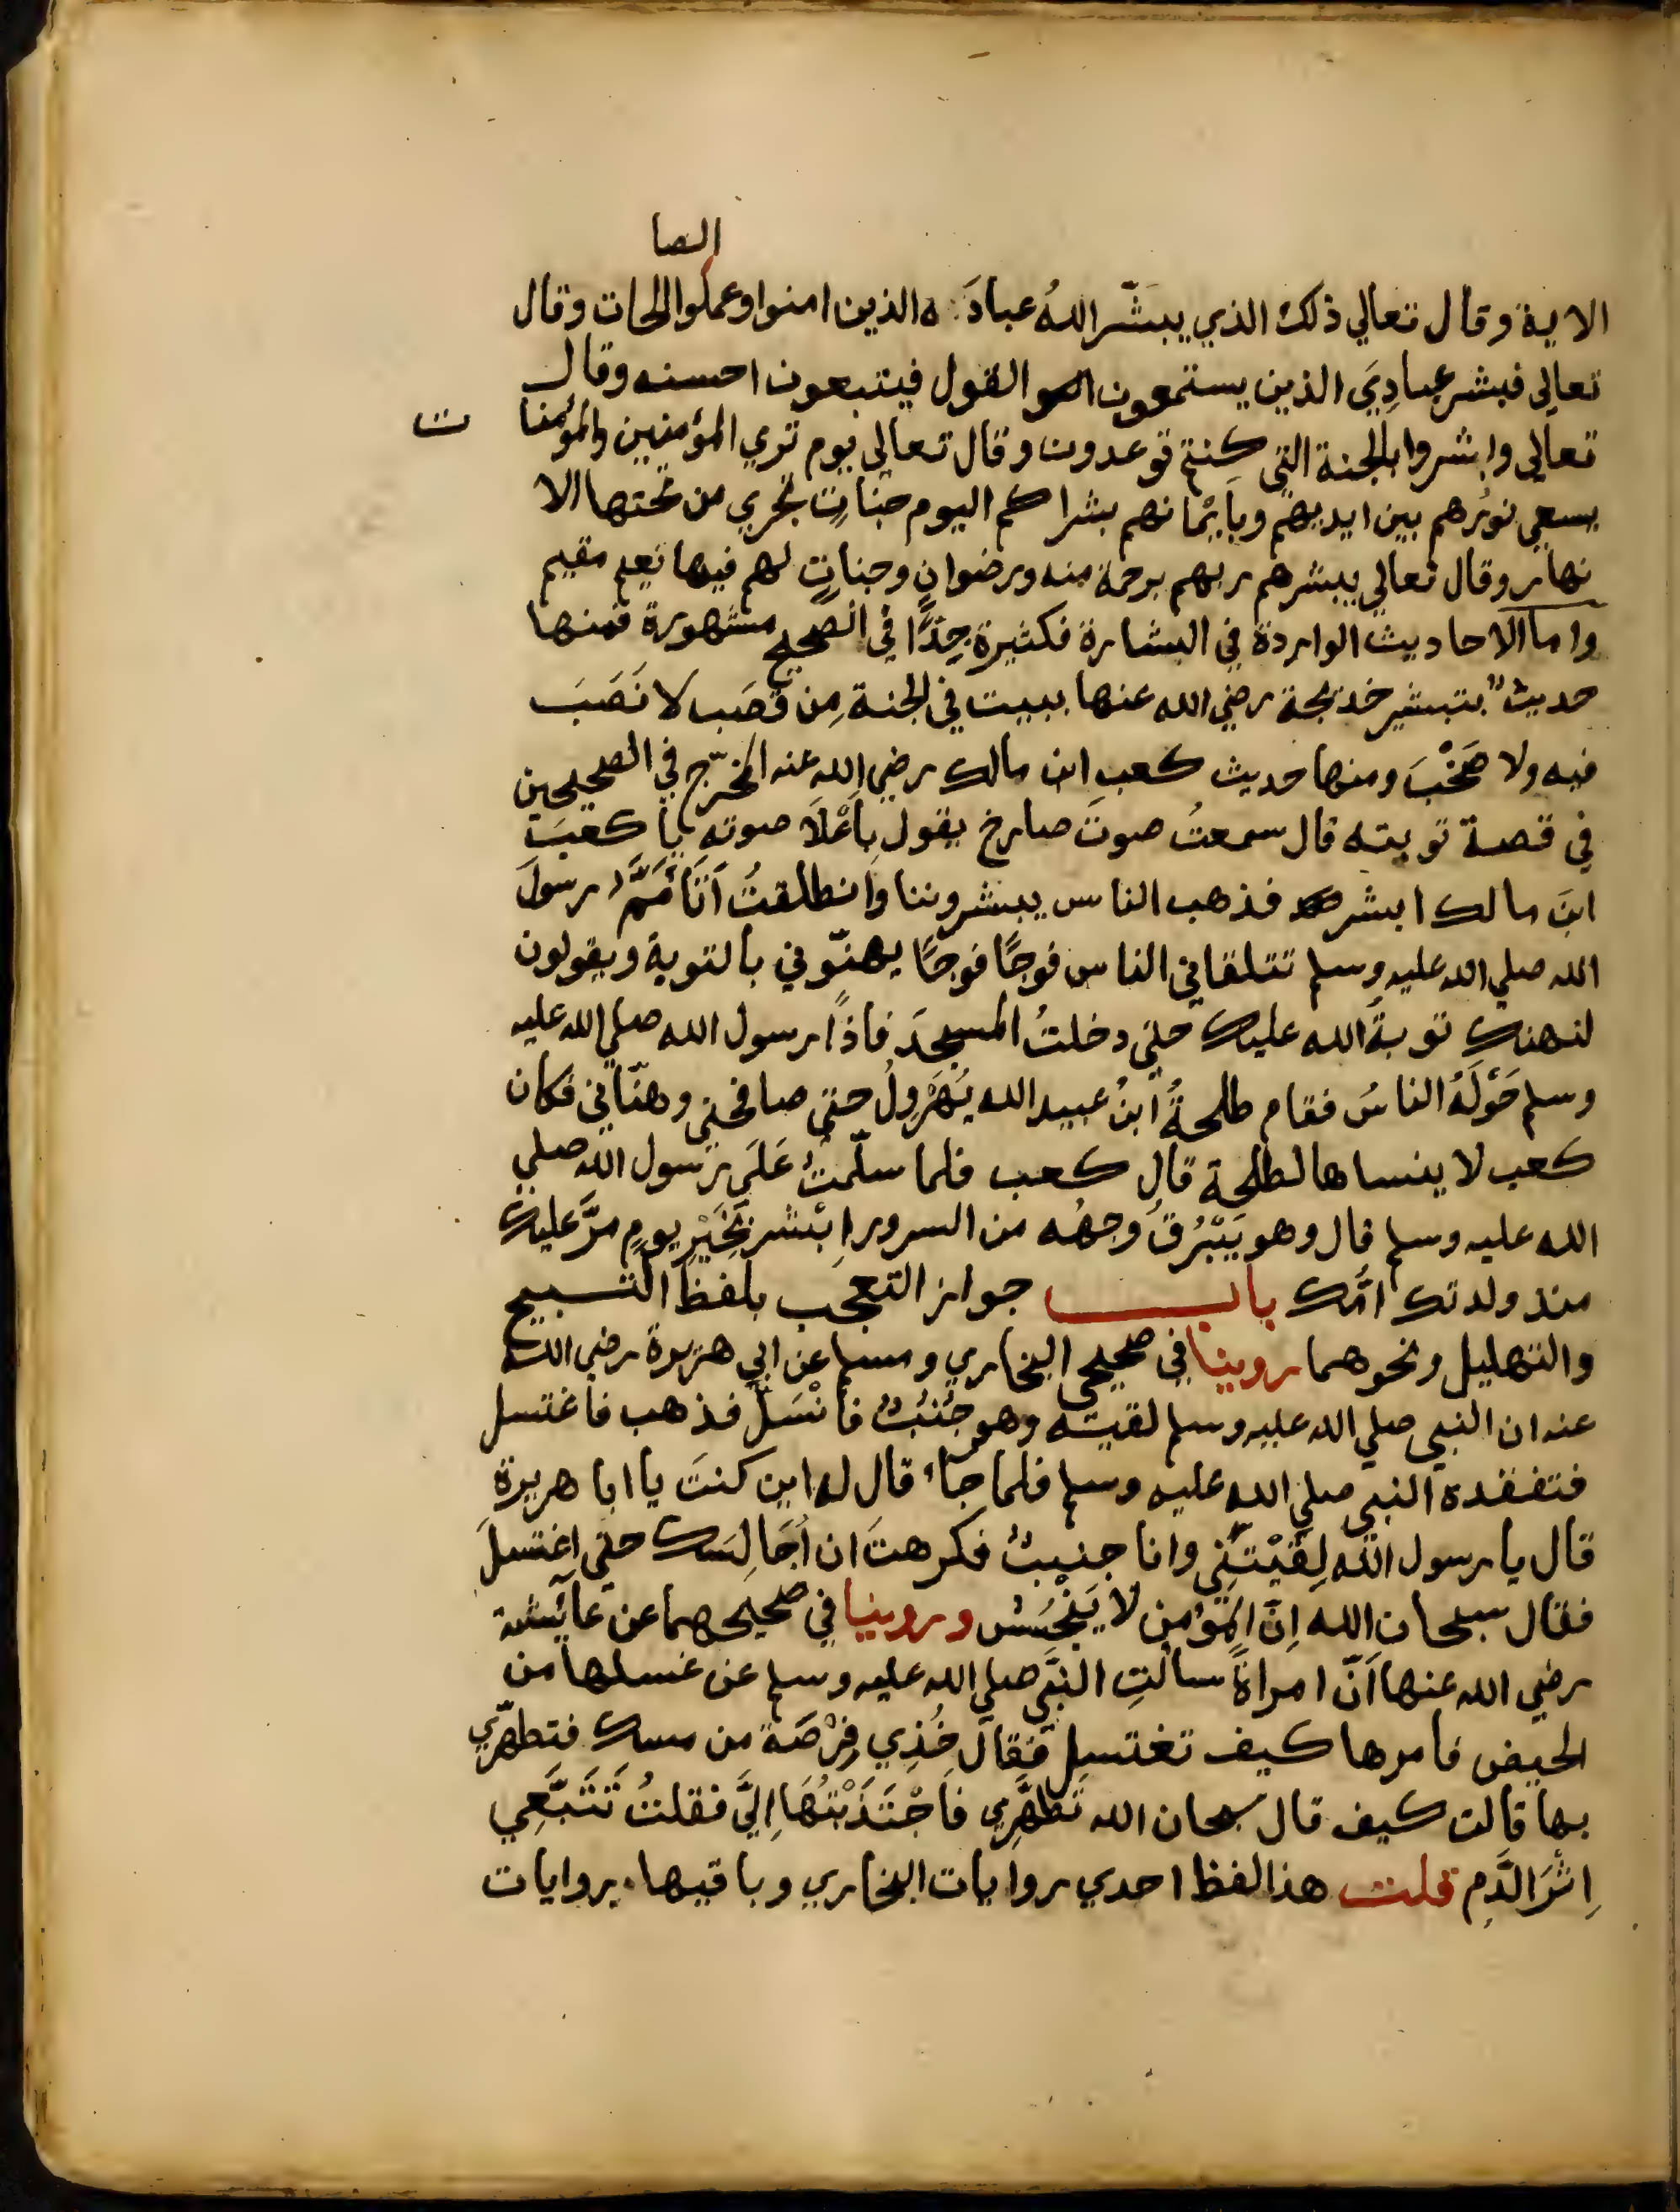 الصا
الاية وقال تعالي ذلك الذي يبشّر اللهُ عبادَه الذين امنوا وعملوا لحات وقال
تعالي فبشر عبادِيَ الذين يستمعون القول فيتبعون احسنه وقال
تعالي وابشروا بالجنة التي كنتم توعدون وقال تعالي يوم تري المؤمنين والمؤمنا ت
يسعي نورُهم بين ايديهم وبايْمانهم بشراكم اليوم جناتٍ تجري من تحتها الا
نهار وقال تعالي يبشرهم ربهم برحمة منه ورضوانٍ وجناتٍ لهم فيها نعيم مقيم
واما الاحاديث الواردة في البشارة فكثيرة جِدًّا في الصحيح مشهورة فمنها
حديث بتبشير خديجة رضي الله عنها ببيت في الجنة مِن قَصَب لا نَصَبَ
فيه ولا صَخْبَ ومنها حديث كعب ابن مالك رضي الله عنه المخرّج في الصحيحين
في قصة توبته قال سمعتُ صوتَ صارخ يقول بِأَعْلَا صوته يا كعبَ
ابنَ مالك ابشر فذهب الناس يبشروننا وانطلقتُ أنا أَمَّمُ رسولَ
الله صلي الله عليه وسلم تتلقاني الناس فوجًا فوجًا يهنّوني بالتوبة ويقولون
لتهنك توبةُ الله عليك حتي دخلتُ المسجدَ فاذًا رسول الله صلي الله عليه
وسلم حَوْلَهُ الناسُ فقام طلحةُ ابنُ عبيد الله يُهَرْوِلُ حتي صافحني وهنّاني فكان
كعب لا ينساها لطلحة قال كعب فلما سلّمتُ عَلَي رسول الله صلي
الله عليه وسلم قال وهو يَبْرُقُ وجهُه من السرور اِبْشر بِخَيْرِ يومٍ مرَّ عليك
منذ ولدتك امّك باب جواز التعجب بلفظ التسبيح
والتهليل ونحوهما روينا في صحيحي البخاري ومسلم عن ابي هريرة رضي الله
عنه ان النبي صلي الله عليه وسلم لقيته وهو جُنُبٌ فانْسَلَّ فذهب فاغتسل
فتفقده النبي صلي الله عليه وسلم فلما جاء قال له اين كنتَ يا ابا هريرة
قال يا رسول الله لِقَيْتَنِي وانا جنبٌ فكرهتَ ان اُجَالِسَك حتي اغتسلَ
فقال سبحان الله اِنَّ المؤمن لا يَنْجُسُ وروينا في صحيحهما عن عائشة
رضي الله عنها اَنَّ امراةً سالتِ النبَّي صلي الله عليه وسلم عن غسلها من
الحيض فامرها كيف تغتسل فَقال خُذِي فِرْصَة من مسك فتطهّري
بها قالت كيف قال سبحان الله تَطَهَّرِي فَاجْتَذَبْتُهَا اِليَّ فقلتُ تَتَبَّعِي
اِثْرَ الدَّمِ قلت هذا لفظ احدي روايات البخاري وباقيها . روايات